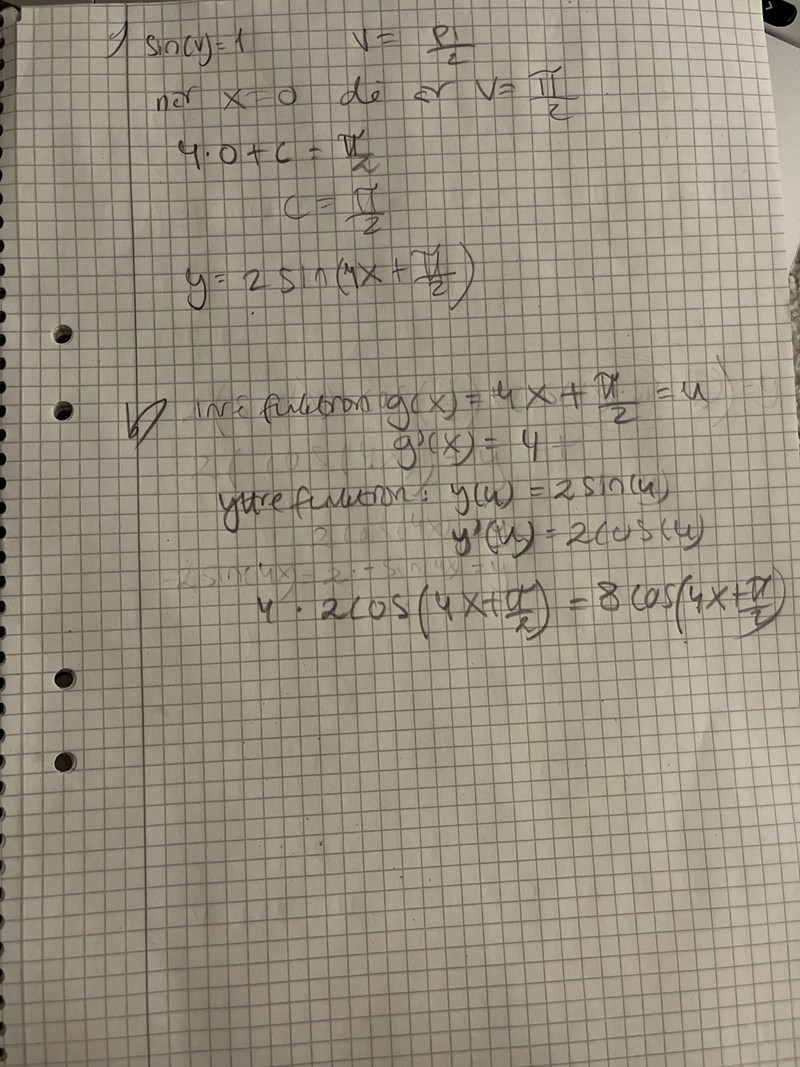 sin(v)=1 v= pi/2
när x=0 då är v= π/2
4·0+c = π/2
c = π/2
y= 2 sin(4x+ π/2)
b) inre funktion: g(x) = 4x + π/2 = u
g'(x) = 4
yttre funktion: y(u) = 2sin(u)
y'(u) = 2cos(u)
4 · 2cos(4x+π/2) = 8cos(4x+π/2)